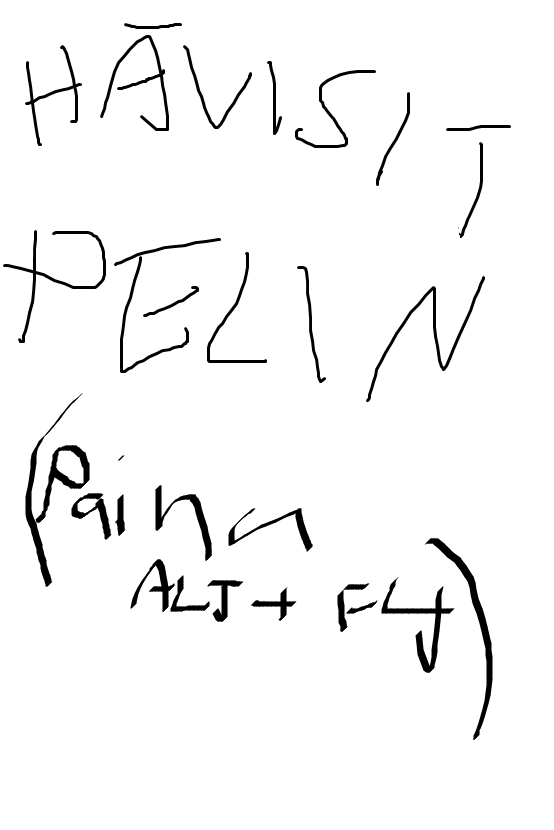 HÄVISIT
PELIN
(Paina
ALT + F4)